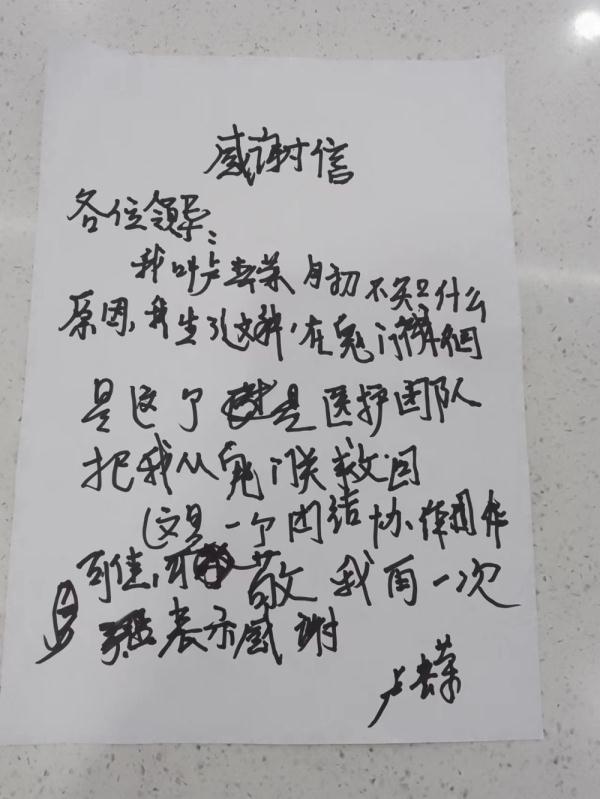 感谢信
各位领导：
我叫卢 荣 月初不知什么
原因，我生 在鬼门徘徊
是这个 是医护团队
把我从鬼门关救回
这是一个团结协作
可 敬 我再一次
表示感谢
卢 荣